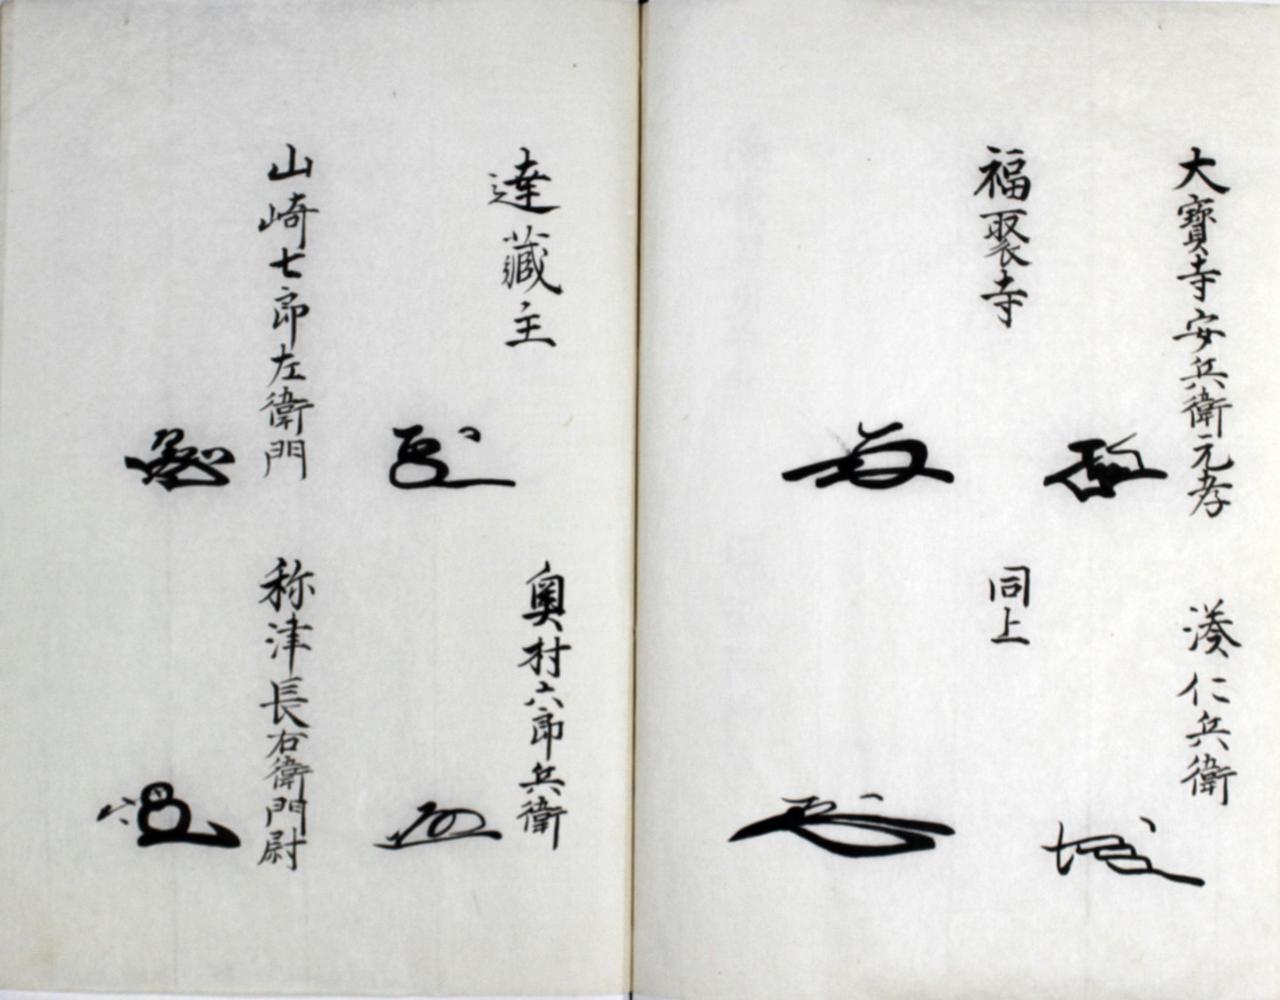 大寶寺安兵衛元孝
湊仁兵衛
福聚寺
同上
達藏主
奥村六郎兵衛
山崎七郎左衛門
称津長右衛門尉